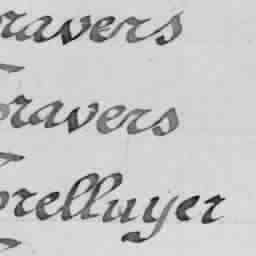 ravers
Travers
Trelluyer